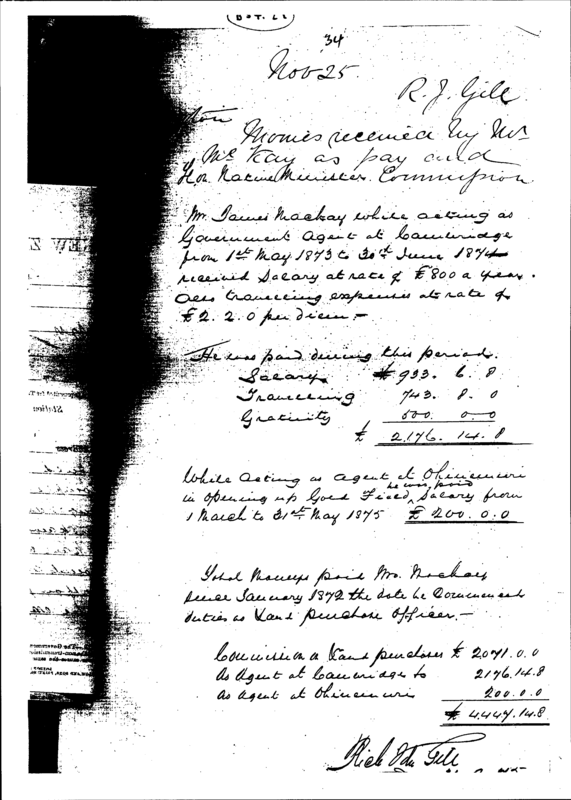 34
Nov 25.
R. J. Gill
Monies received by Mr
Mc Kay as pay and
Hon. Native Minister. Commission
Mr. James Mackay while acting as
Government Agent at Cambridge
from 1st May 1873 to 30th June 1874
received Salary at rate of £800 a year.
also travelling expenses at rate of
£2. 2. 0 per diem.-
He was paid during this period.
Salary £933. 6. 8
Travelling 743. 8. 0
Gratuity 500. 0. 0
£ 2,176. 14. 8
While acting as agent at Ohinemuri
in opening up Gold Field, he was paid Salary from
1 March to 31st May 1875 £ 200. 0. 0
Total Moneys paid Mr. Mackay
since January 1872 the date he Commenced
duties as Land purchase Officer.-
Commission on Land purchases £ 2071. 0. 0
As Agent at Cambridge &c 2176. 14. 8
As agent at Ohinemuri 200. 0. 0
£ 4,447. 14. 8
Rich Jn Gill